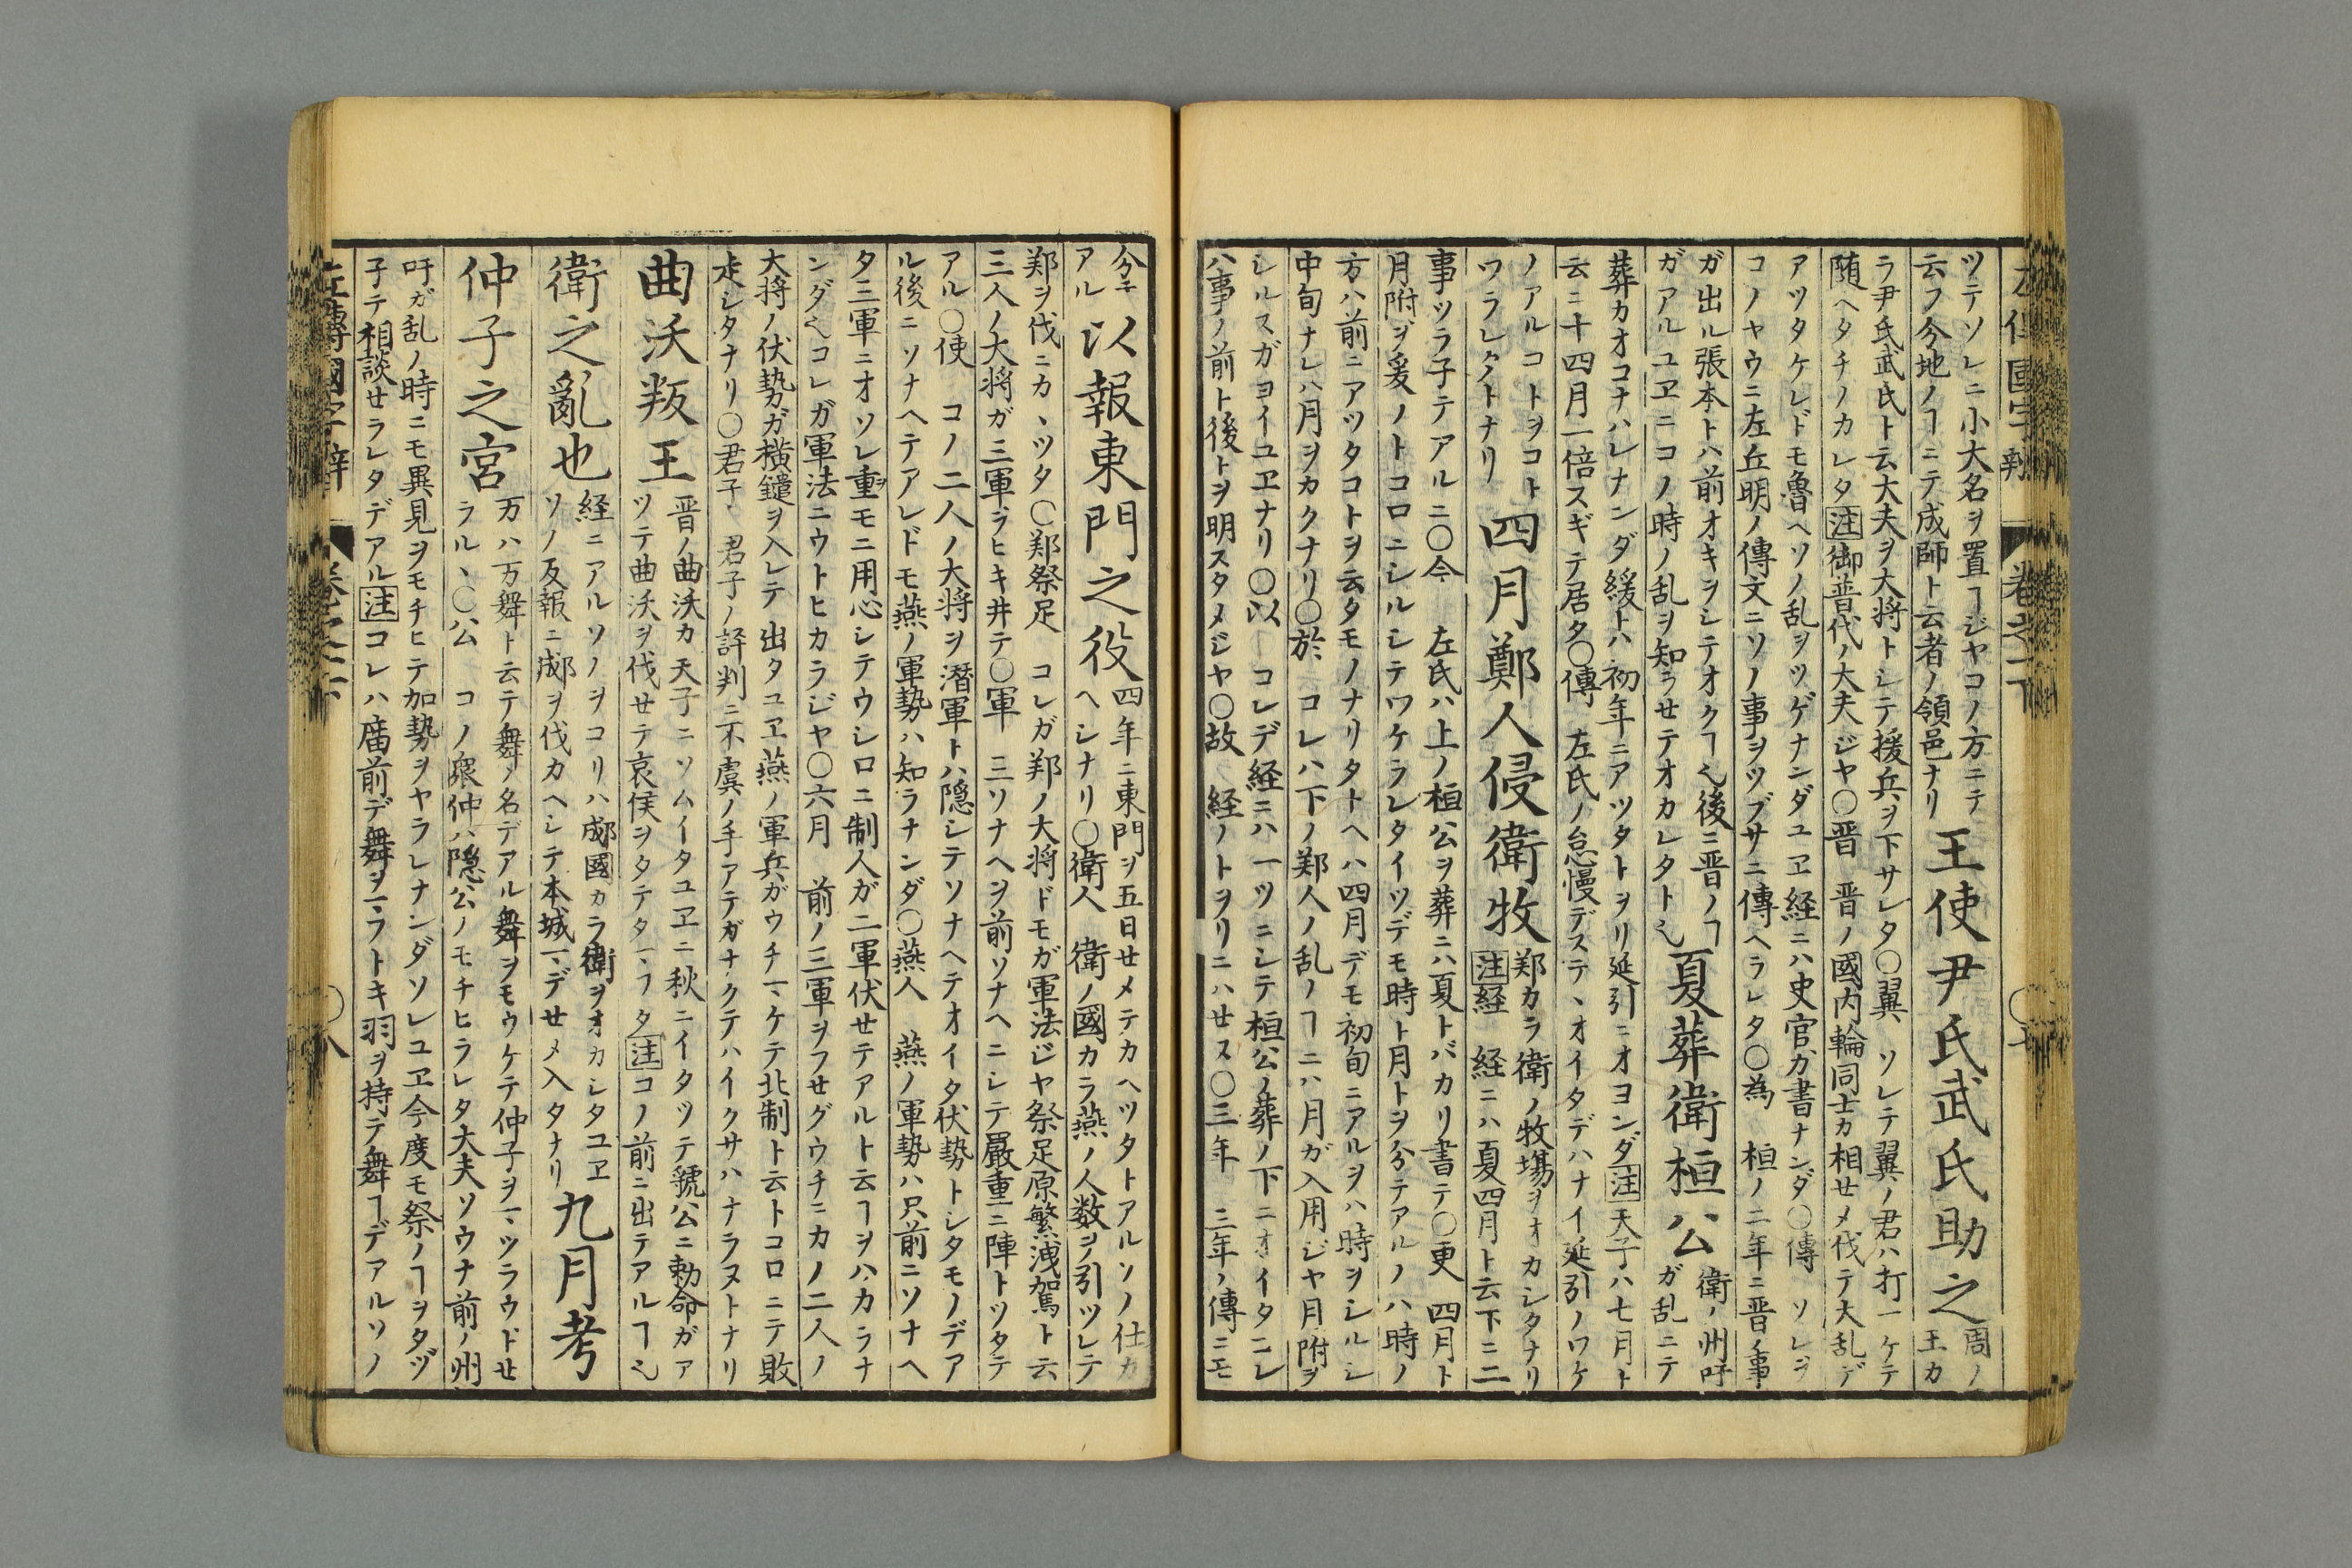 左傳國字辯 卷之一下
ツテソレニ小大名ヲ置ヿジヤコノ方ニテ
云フ今地ノヿニテ成師ト云者ノ領邑ナリ
王使尹氏武氏助之
周ノ
王カ
ラ尹氏武氏ト云大夫ヲ大将トシテ援兵ヲ下サレタ〇翼 ソレテ翼ノ君ハ打一ケテ
随ヘタチノカレタ注御普代ノ大夫ジヤ〇晋 晋ノ國内輪同士カ相せメ伐テ大乱デ
アツタケレドモ魯ヘソノ乱ヲツゲナンダユヱ経ニハ史官ガ書ナンダ〇傳 ソレヲ
コノヤウニ左丘明ノ傳文ニソノ事ヲツブサニ傳ヘラレタ〇為 桓ノ二年ニ晋ノ事
ガ出ル張本ト八前オキヲシテオクヿ也後ニ晋ノヿ
ガアルユヱニコノ時ノ乱ヲ知ラせテオカレタト也
夏葬衛桓公
衛ノ州吁
ガ乱ニテ
葬カオコナハレナンダ緩トハ初年ニアツタトヲリ延引ニオヨンダ注天子ハ七月ト
云ニ十四月一倍スギテ居タ〇傳 左氏ノ怠慢デステヽオイタデハナイ延引ノワケ
ノアルコトヲコト
ワラレタトナリ
四月鄭人侵衛牧
郑カラ衛ノ牧場ヲオカシタナリ
注経 経ニハ夏四月ト云下ニ二
事ツラ子テアルニ〇今 左氏ハ上ノ桓公ヲ葬ニハ夏トバカリ書テ〇更 四月ト
月附ヲ爰ノトコロニシルシテワケラレタイツデモ時ト月トヲ分テアルノハ時ノ
方ハ前ニアツタコトヲ云タモノナリタトヘハ四月デモ初旬ニアルヲハ時ヲシルシ
中旬ナレハ月ヲカクナリ〇於 コレハ下ノ郑人ノ乱ノヿニハ月ガ入用ジヤ月附ヲ
シルスガヨイユヱナリ〇以 コレデ経ニハ一ツニシテ桓公ノ葬ノ下ニオイタニレ
ハ事ノ前ト後トヲ明スタメジヤ〇故 経ノトヲリニハせス〇三年 三年ノ傳ニモ
分テ
アル
以報東門之役
四年ニ東門ヲ五日せメテカヘツタトアルソノ仕カ
ヘシナリ〇衛人 衛ノ國カラ燕ノ人数ヲ引ツレテ
郑ヲ伐ニカヽツタ〇郑祭足 コレガ郑ノ大将ドモガ軍法ジヤ祭足原繁洩駕ト云
三人ノ大将ガ三軍ヲヒキ井テ〇軍 三ソナヘヲ前ソナヘニシテ嚴重ニ陣トツタテ
アル〇使 コノ二人ノ大将ヲ潜軍トハ隠シテソナヘテオイタ伏勢トシタモノデア
ル後ニソナヘテアレドモ燕ノ軍勢ハ知ラナンダ〇燕人 燕ノ軍勢ハ只前ニソナヘ
タ三軍ニオソレ重ヲモニ用心シテウシロニ制人ガ二軍伏せテアルト云ヿヲハカラナ
ンダ也コレガ軍法ニウトヒカラジヤ〇六月 前ノ三軍ヲフせグウチニカノ二人ノ
大将ノ伏勢ガ横鑓ヲ入レテ出タユヱ燕ノ軍兵ガウチマケテ北制ト云トコロニテ敗
走シタナリ〇君子 君子ノ評判ニ不虞ノ手アテガナクテハイクサハナラヌトナリ
曲沃叛王
晋ノ曲沃カ天子ニソムイタユヱニ秋ニイタツテ虢公ニ勅命ガア
ツテ曲沃ヲ伐せテ哀侯ヲタテタマフタ注コノ前ニ出テアルヿ也
衛之亂也
経ニアルソノヲコリハ郕國カラ衛ヲオカシタユヱ
ソノ反報ニ郕ヲ伐カヘシテ本城マデせメ入タナリ
九月考
仲子之宮
万ハ万舞ト云テ舞ノ名デアル舞ヲモウケテ仲子ヲマツラウドせ
ラルヽ〇公 コノ衆仲ハ隠公ノモチヒラレタ大夫ソウナ前ノ州
吁ガ乱ノ時ニモ異見ヲモチヒテ加勢ヲヤラレナンダソレユヱ今度モ祭ノヿヲタヅ
子テ相談せラレタデアル注コレハ庿前デ舞ヲマフトキ羽ヲ持テ舞ヿデアルソノ
左傳國字辯 卷之一下 〇八